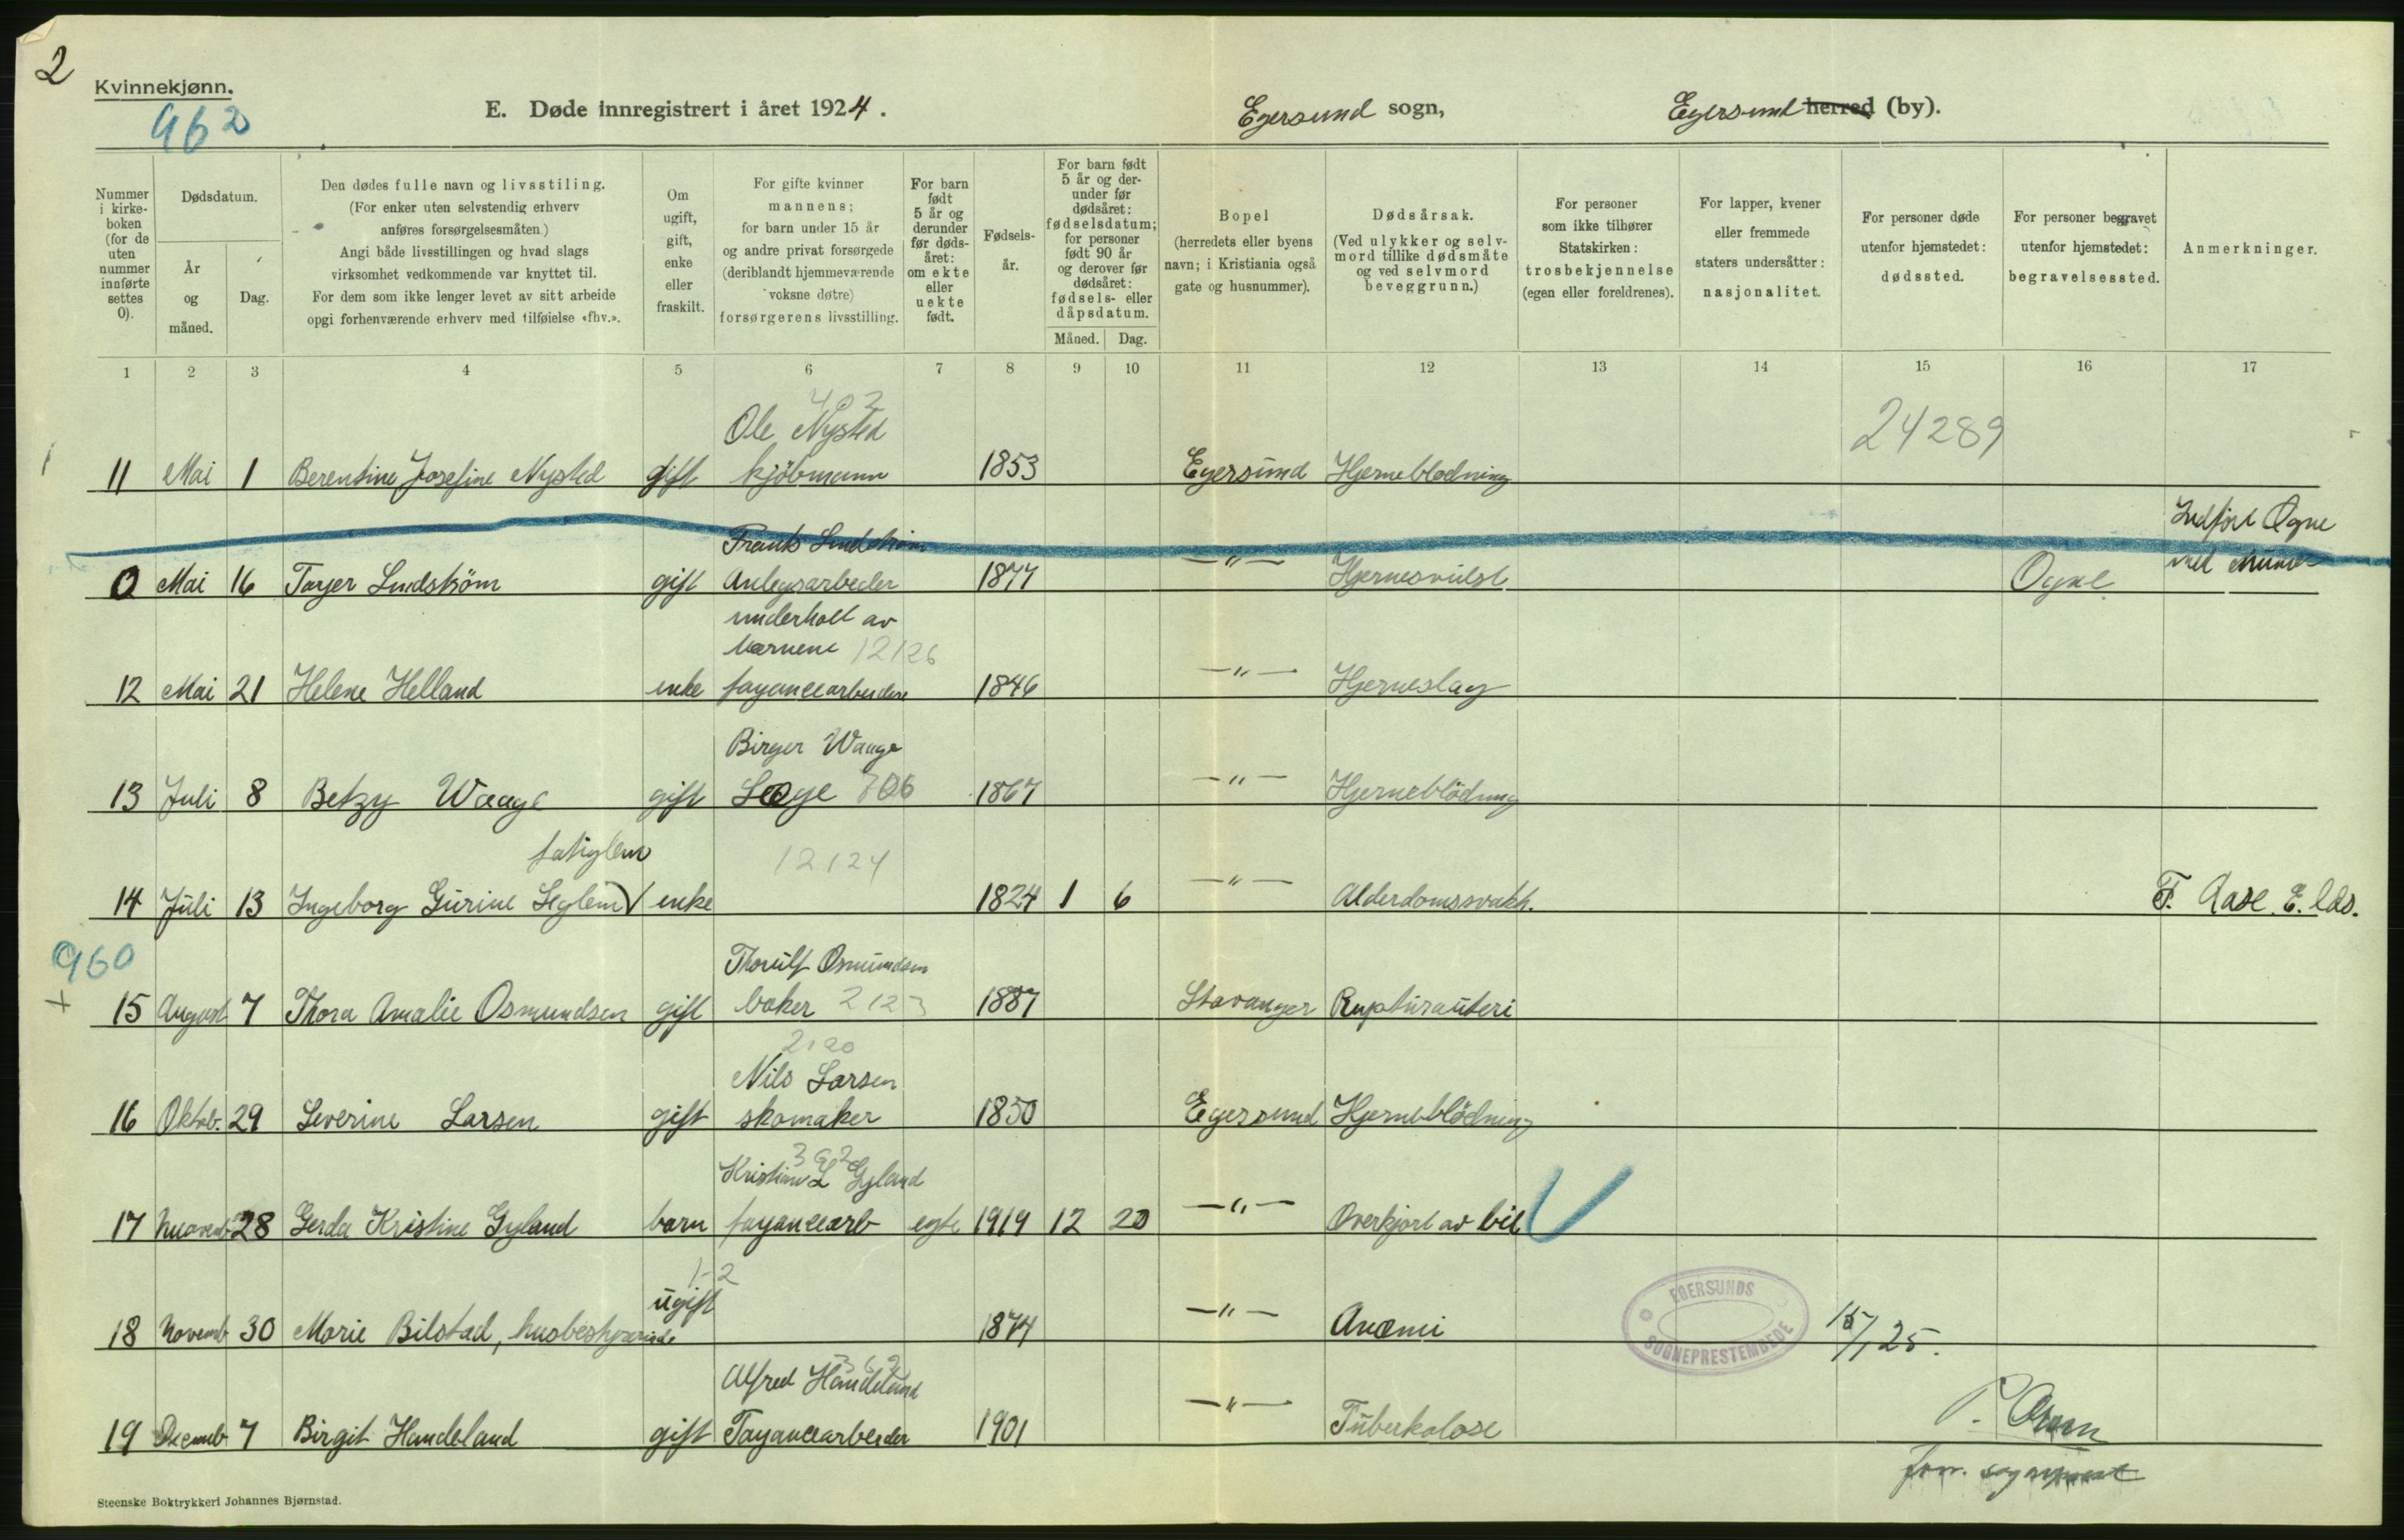 2
Kvinnekjønn.
962
E. Døde innregistrert i året 1924.
Egersund sogn,
Egersund herred (by).
Nummer i kirke- boken (for de uten nummer innførte settes 0).
Dødsdatum.
År og måned.
Dag.
Den dødes fulle navn og livsstiling.
(For enker uten selvstendig erhverv
anføres forsørgelsesmåten.)
Angi både livsstillingen og hvad slags
virksomhet vedkommende var knyttet til.
For dem som ikke lenger levet av sitt arbeide
opgi forhenværende erhverv med tilføielse «fhv.».
Om ugift, gift, enke eller fraskilt.
For gifte kvinner
mannens;
for barn under 15 år
og andre privat forsørgede
(deriblandt hjemmeværende
voksne døtre)
forsørgerens livsstilling.
For barn født 5 år og derunder før døds- året: om ekte eller uekte født.
Fødsels- år.
For barn født
5 år og der-
under før
dødsåret:
fødselsdatum;
for personer
født 90 år
og derover før
dødsåret:
fødsels- eller
dåpsdatum.
Måned. Dag.
Bopel
(herredets eller byens
navn; i Kristiania også
gate og husnummer).
Dødsårsak.
(Ved ulykker og selv-
mord tillike dødsmåte
og ved selvmord
beveggrunn.)
For personer
som ikke tilhører
Statskirken:
trosbekjennelse
(egen eller foreldrenes).
For lapper, kvener
eller fremmede
staters undersåtter:
nasjonalitet.
For personer døde
utenfor hjemstedet:
dødssted.
For personer begravet
utenfor hjemstedet:
begravelsessted.
Anmerkninger.
1 2 3 4 5 6 7 8 9 10 11 12 13 14 15 16 17
402
Ole Nysted
24289
11 Mai 1 Berentine Josefine Nysted gift kjöbmann 1853 Egersund Hjerneblødning
Indført Ogne
0 Mai 16 Lindström gift Anlegsarbeider 1877 -"- Hjernesvulst Ogne
underholt av
barnene 12126
12 Mai 21 Helene Helland enke fayancearbeidere 1846 -"- Hjerneslag
Birger Waage
13 Juli 8 Betzy Waage gift Læge 706 1867 -"- Hjerneblödning
fatiglem
12124
14 Juli 13 Ingeborg Gurine Seglem enke 1824 1 6 -"- Alderdomssvakh. F. Aase. E. lds.
960
Thorulf Osmundsen
+ 15 August 7 Thora Amalie Osmundsen gift baker 2123 1887 Stavanger Ruptura uteri
Nils Larsen
16 Oktob. 29 Severine Larsen gift skomaker 1850 Egersund Hjerneblödning
392
Kristian L Gyland
17 28 Gerda Kristine Gyland barn fayancearb egte 1919 12 20 -"- Overkjørt av bil
1-2
ugift
18 Novemb 30 Marie Bilstad, husbestyrerinde 1874 -"- Anæmi
EGERSUNDS SOGNEPRESTEMBEDE
15/1 25.
Alfred Handeland
19 Decemb 7 Birgit Handeland gift Fayancearbeider 1901 -"- Tuberkolose
Steenske Boktrykkeri Johannes Bjørnstad.